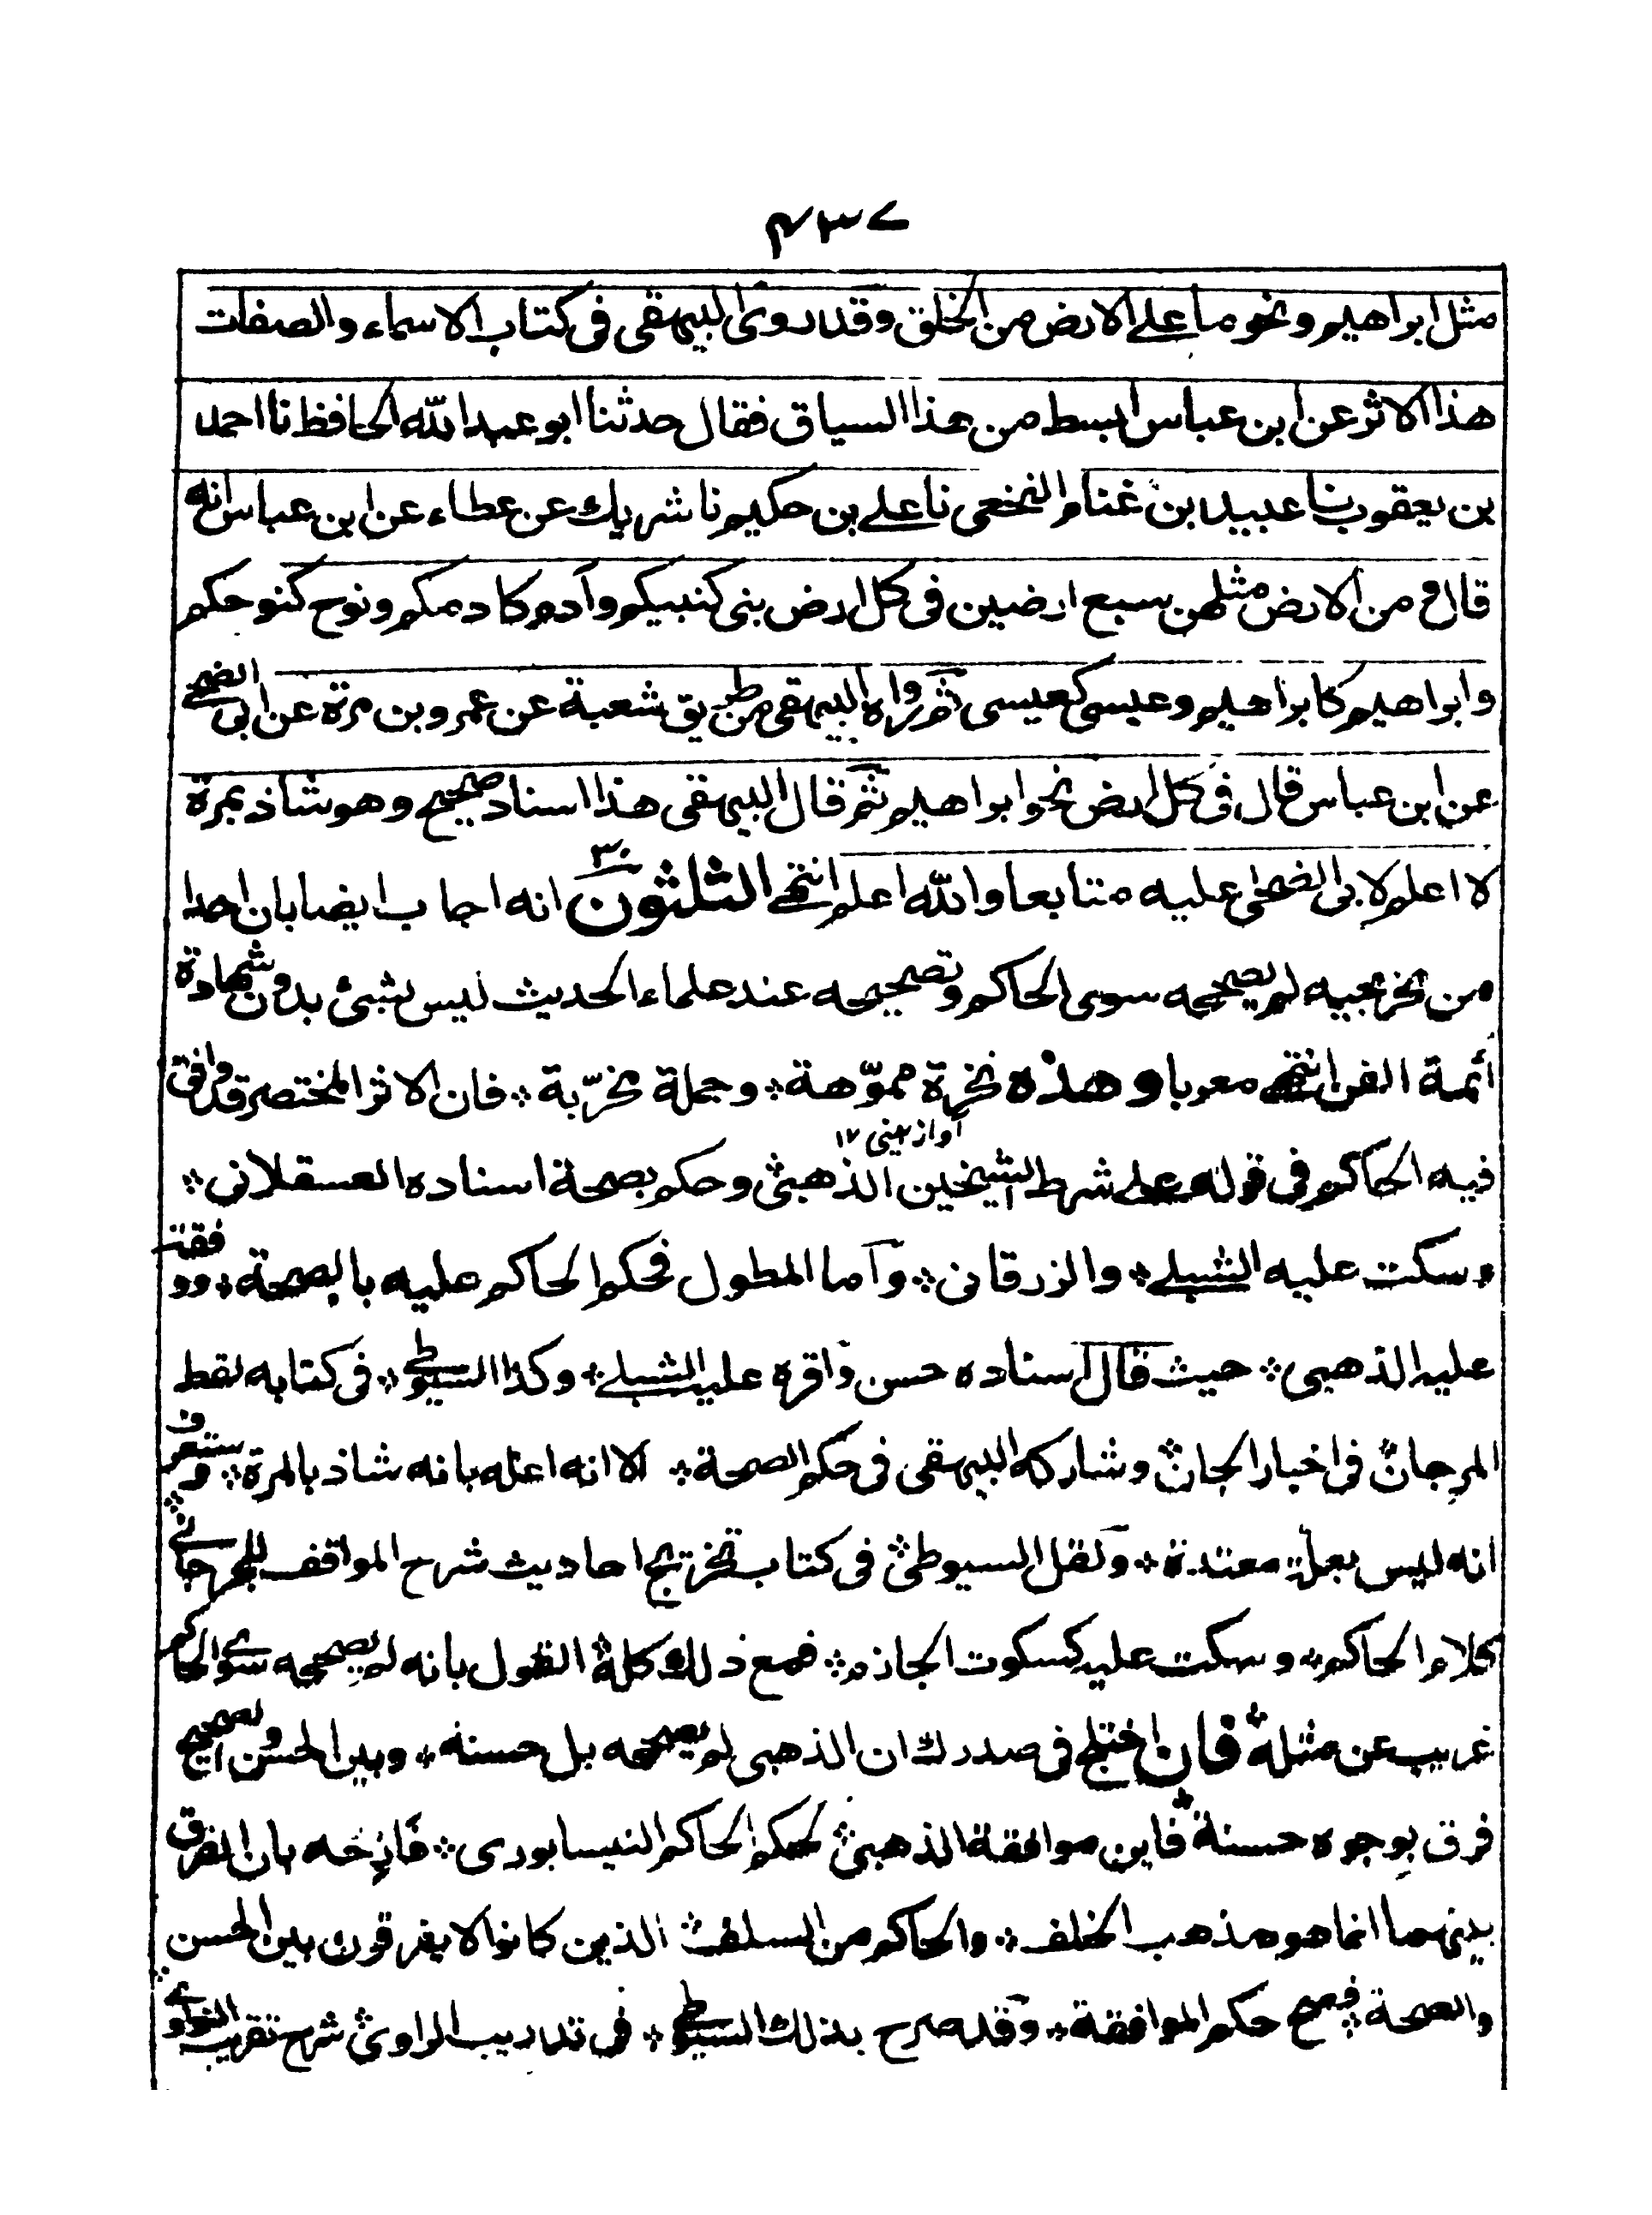 ۴۳۷
مثل ابراهيم ونحو ما على الارض من الخلق وقد روى البيهقى فى كتاب الاسماء والصفات
هذا الاثر عن ابن عباس ابسط من هذا السياق فقال حدثنا ابو عبد الله الحافظ نا احمد
بن يعقوب نا عبيد بن غنام النخعى نا على بن حكيم نا شريك عن عطاء عن ابن عباس انه
قال و من الارض مثلهن سبع ارضين فى كل ارض بنى كنبيكم وآدم كادمكم ونوح كنوحكم
وابراهيم كابراهيم وعيسى كعيسى ثم رواه البيهقى من طريق شعبة عن عمرو بن مرة عن ابى الضحى
عن ابن عباس قال فى كل ارض نحو ابراهيم ثم قال البيهقى هذا اسناد صحيح وهو شاذ بمرة
لا اعلم لابى الضحى عليه متابعا والله اعلم انتهى الثلثون ۳۰ انه اجاب ايضا بان احدا
من مخرجيه لم يصححه سوى الحاكم وتصحيحه عند علماء الحديث ليس بشئ بدون شهادة
أئمة الفن انتهى معربا وهذه نخرة مموّهة ؞ وجملة مخرّبة ؞ فان الاثر المختصر قد وافق
آواز بينى ۱۲
فيه الحاكم فى قوله على شرط الشيخين الذهبى ؞ وحكم بصحة اسناده العسقلانى ؞
وسكت عليه الشبلى ؞ والزرقانى ؞ وآما المطول فحكم الحاكم عليه بالصحة ؞ ووافقه
عليه الذهبى ؞ حيث قال اسناده حسن واقره عليه الشبلى ؞ وكذا السيوطى ؞ فى كتابه لقط
المرجان ؞ فى اخبار الجان ؞ وشاركه البيهقى فى حكم الصحة ؞ الا انه اعله بانه شاذ بالمرة ؞ وستعرف
انه ليس بعلة معتدة ؞ ونقل السيوطى ؞ فى كتاب تخريج احاديث شرح المواقف للجرجانى ؞
كلام الحاكم ؞ وسكت عليه كسكوت الجازم ؞ فمع ذلك كله ؞ القول بانه لم يصححه سوى الحاكم
غريب عن مثله ؞ فان اختلج فى صدرك ان الذهبى لم يصححه بل حسنه ؞ وبين الحسن والصحيح
فرق بوجوه حسنة ؞ فاين موافقة الذهبى ؞ لحكم الحاكم النيسابورى ؞ فازحه بان الفرق
بينهما انما هو مذهب الخلف ؞ والحاكم من السلف ؞ الذين كانوا لا يفرقون بين الحسن
والصحة ؞ فصح حكم الموافقة ؞ وقد صرح بذلك السيوطى ؞ فى تدريب الراوى ؞ شرح تقريب النواوى ؞